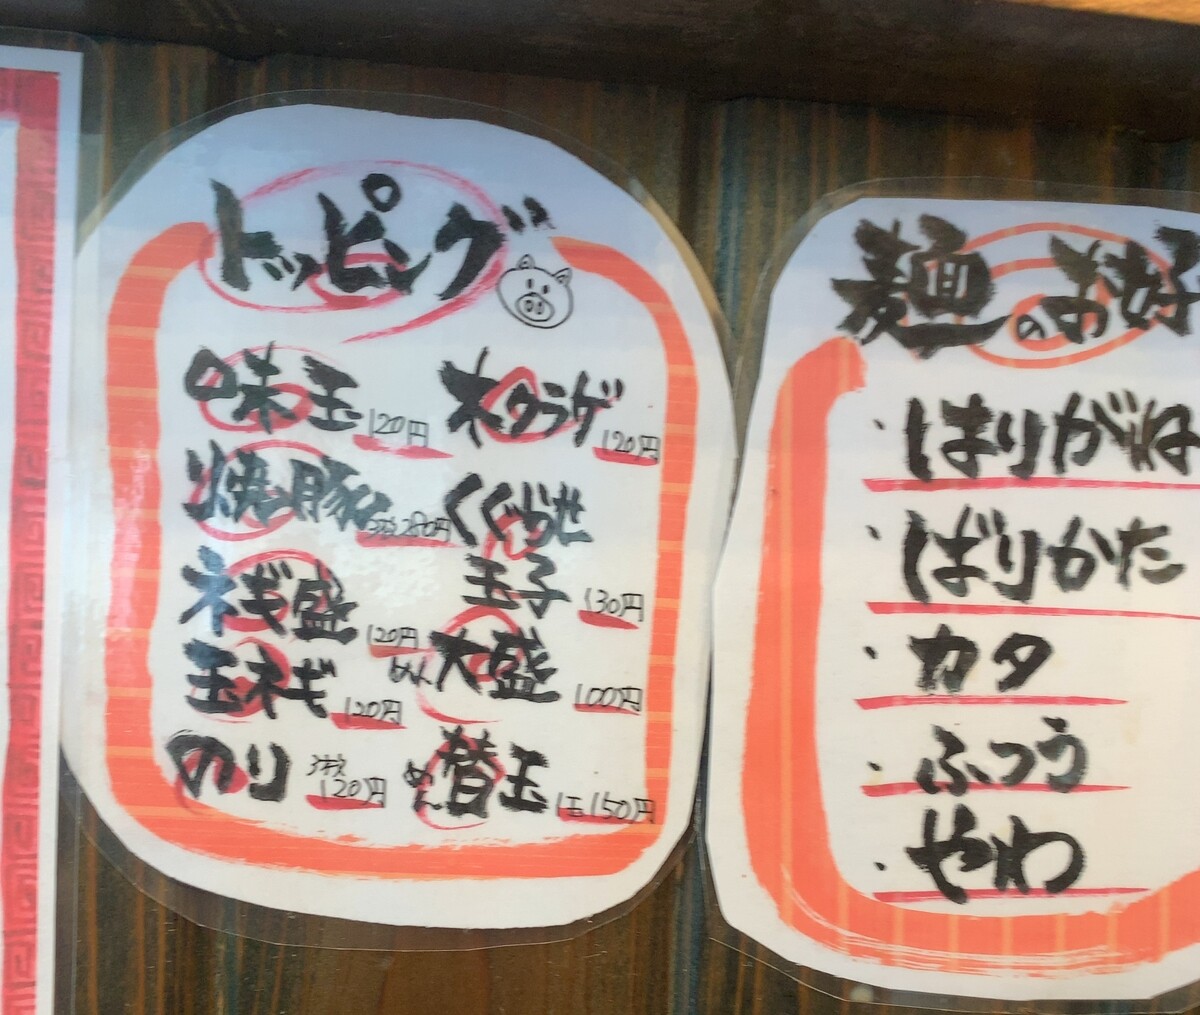 トッピング
味玉 120円
焼豚 3枚 280円
ネギ盛 120円
玉ネギ 120円
のり 3枚 120円
木クラゲ 120円
くんせい
玉子 130円
めん大盛 100円
めん替玉 1玉 150円
麺のお好
・はりがね
・ばりかた
・カタ
・ふつう
・やわ